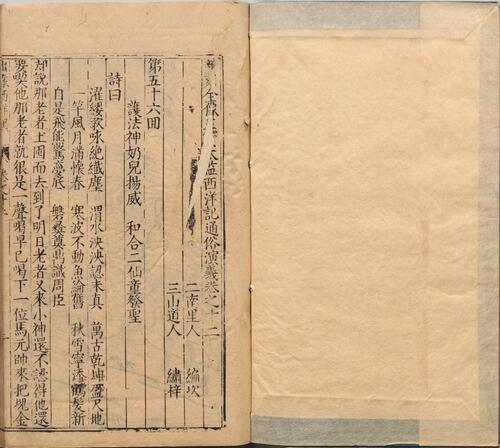 太監西洋記通俗演義卷之十二
二南里人 編次
三山道人 繡梓
第五十六回
護法神奶兒揚威 和合二仙童發聖
詩曰
濯纓歌咏絕纖塵 渭水泱泱認未真 萬古乾坤盈尺地
一竿風月滿懷春 寒波不動魚綸舊 秋雪寧添鶴髮新
自是飛能驚夢底 磻溪奠鼎識周臣
却說那老者土囤而去到了明日老者又來小神還不認得他還
要哭他那老者就很是一聲喝早已喝下一位馬元帥來把塊金